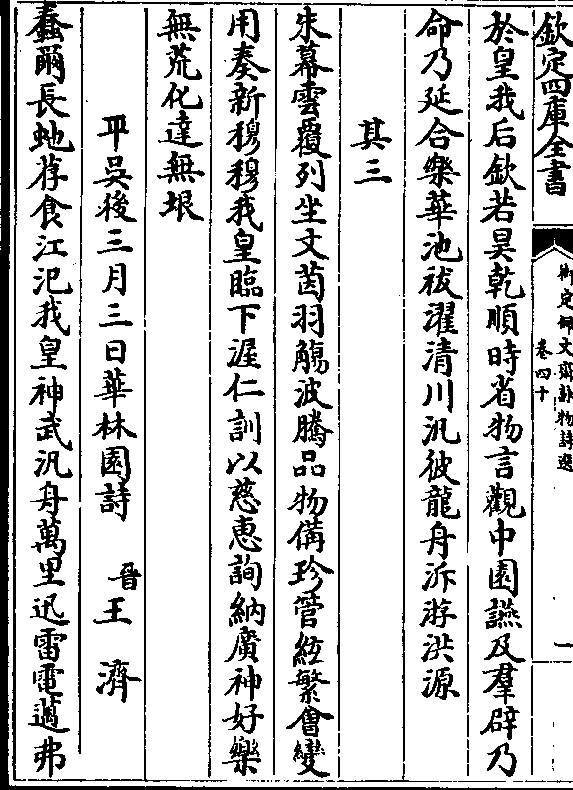 欽定四庫全書
御定佩文齋詠物詩選
卷四十
一
於皇我后欽若昊乾順時省物言觀中園讌及羣辟乃
命乃延合樂華池祓濯清川汎彼龍舟泝游洪源
其三
朱幕雲覆列坐文茵羽觴波騰品物備珍管絃繁會變
用奏新穆穆我皇臨下渥仁訓以慈惠詢納廣神好樂
無荒化達無垠
平吳後三月三日華林園詩　晉王濟
蠢爾長虵荐食江汜我皇神武汎舟萬里迅雷電邁弗